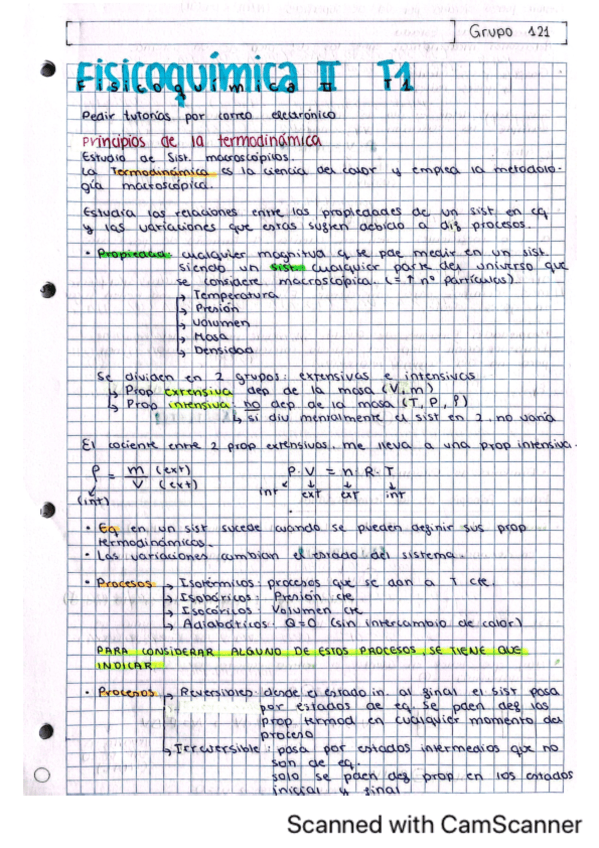 Grupo 121
Fisicoquímica II T1
Pedir tutorías por correo electrónico
Principios de la termodinámica
Estudio de Sist. macroscópicos.
La Termodinámica es la ciencia del calor y emplea la metodolo-
gía macroscópica.
Estudia las relaciones entre las propiedades de un sist. en eq
y las variaciones que estas sufren debido a dif procesos.
• Propiedad: cualquier magnitud q se pde medir en un sist.
siendo un sist. cualquier parte del universo que
se considere macroscópica. (= ↑ nº partículas)
↳ Temperatura
↳ Presión
↳ Volumen
↳ Masa
↳ Densidad
Se dividen en 2 grupos: extensivas e intensivas
↳ Prop extensiva dep de la masa (V, m)
↳ Prop intensiva: no dep de la masa (T, P, ρ)
↳ si div mentalmente el sist en 2, no varía
El cociente entre 2 prop extensivas, me lleva a una prop intensiva.
ρ = m/V (ext) (ext) P · V = n · R · T
(int) int ext ext int
• Eq en un sist sucede cuando se pueden definir sus prop
termodinámicas.
• Las variaciones cambian el estado del sistema.
• Procesos ↳ Isotérmicos: procesos que se dan a T cte.
↳ Isobáricos: Presión cte
↳ Isocóricos: Volumen cte
↳ Adiabáticos: Q=0 (sin intercambio de calor)
PARA CONSIDERAR ALGUNO DE ESTOS PROCESOS, SE TIENE QUE
INDICAR
• Procesos ↳ Reversibles: desde el estado in. al final el sist pasa
por estados de eq. Se pden def las
prop termod en cualquier momento del
proceso
↳ Irreversible: pasa por estados intermedios que no
son de eq.
solo se pden def prop en los estados
inicial y final
Scanned with CamScanner